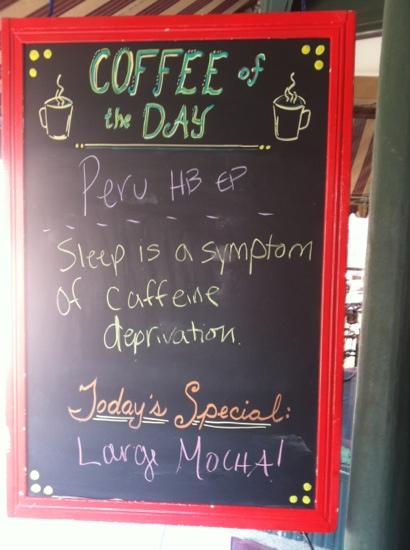 COFFEE of
the DAY
Peru HB EP
Sleep is a symptom
of caffeine
deprivation.
Today's Special:
Large MOCHA!